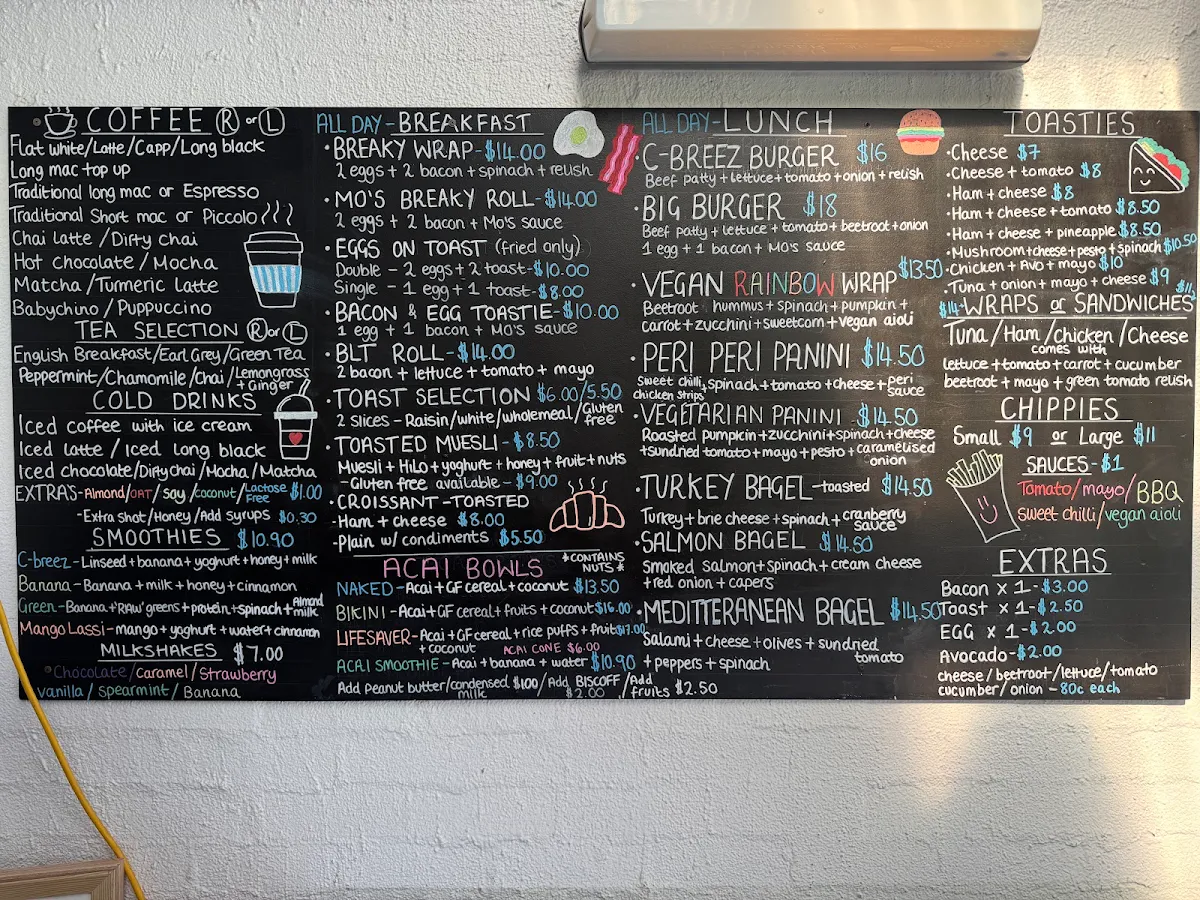 COFFEE R or L
Flat white/Latte/Capp/Long black
Long mac top up
Traditional long mac or Espresso
Traditional Short mac or Piccolo
Chai Latte/Dirty chai
Hot chocolate/Mocha
Matcha/Turmeric Latte
Babychino/Puppuccino
TEA SELECTION R or L
English Breakfast/Earl Grey/Green Tea
Peppermint/Chamomile/Chai/Lemongrass + Ginger
COLD DRINKS
Iced coffee with ice cream
Iced latte/Iced long black
Iced chocolate/Dirty chai/Mocha/Matcha
EXTRA'S-Almond/OAT/Soy/coconut/Lactose Free $1.00
-Extra shot/Honey/Add syrups $0.30
SMOOTHIES $10.90
C-breez-Linseed+banana+yoghurt+honey+milk
Banana-Banana+milk+honey+cinnamon
Green-Banana+'RAW' greens+protein+spinach+Almond milk
Mango Lassi-mango+yoghurt+water+cinnamn
MILKSHAKES $7.00
Chocolate/caramel/Strawberry
vanilla/spearmint/Banana
ALL DAY-BREAKFAST
·BREAKY WRAP-$14.00
2 eggs+2 bacon+spinach+relish
·MO'S BREAKY ROLL-$14.00
2 eggs+2 bacon+Mo's sauce
·EGGS ON TOAST (fried only)
Double - 2 eggs+2 toast-$10.00
Single - 1 egg+1 toast-$8.00
·BACON & EGG TOASTIE-$10.00
1 egg+1 bacon+Mo's sauce
·BLT ROLL-$14.00
2 bacon+lettuce+tomato+mayo
·TOAST SELECTION $6.00/5.50
2 slices-Raisin/white/wholemeal/Gluten free
·TOASTED MUESLI-$8.50
Muesli+HiLo+yoghurt+honey+fruit+nuts
-Gluten free available-$9.00
·CROISSANT-TOASTED
-Ham+cheese $8.00
-plain w/ condiments $5.50
ACAI BOWLS *CONTAINS NUTS*
NAKED-Acai+GF cereal+coconut $13.50
BIKINI-Acai+GF cereal+fruits+coconut $16.00
LIFESAVER-Acai+GF cereal+rice puffs+fruit $17.00
+coconut ACAI CONE $6.00
ACAI SMOOTHIE-Acai+banana+water $10.90
Add Peanut butter/condensed milk $1.00/Add BISCOFF $2.00/Add fruits $2.50
ALL DAY-LUNCH
·C-BREEZ BURGER $16
Beef patty+lettuce+tomato+onion+relish
·BIG BURGER $18
Beef patty+lettuce+tomato+beetroot+onion
1 egg+1 bacon+Mo's sauce
·VEGAN RAINBOW WRAP $13.50
Beetroot hummus+spinach+pumpkin+
carrot+zucchini+sweetcorn+vegan aioli
·PERI PERI PANINI $14.50
sweet chilli chicken strips, spinach+tomato+cheese+peri sauce
·VEGETARIAN PANINI $14.50
Roasted pumpkin+zucchini+spinach+cheese
+sundried tomato+mayo+pesto+caramelised onion
·TURKEY BAGEL-toasted $14.50
Turkey+brie cheese+spinach+cranberry sauce
·SALMON BAGEL $14.50
Smoked salmon+spinach+cream cheese
+red onion+capers
·MEDITTERANEAN BAGEL $14.50
Salami+cheese+olives+sundried tomato
+peppers+spinach
TOASTIES
·Cheese $7
·Cheese+tomato $8
·Ham+cheese $8
·Ham+cheese+tomato $8.50
·Ham+cheese+pineapple $8.50
·Mushroom+cheese+pesto+spinach $10.50
·Chicken+Avo+mayo $10
·Tuna+onion+mayo+cheese $9
$14 WRAPS or SANDWICHES
Tuna/Ham/Chicken/Cheese
comes with
lettuce+tomato+carrot+cucumber
beetroot+mayo+green tomato relish
CHIPPIES
Small $9 or Large $11
SAUCES-$1
Tomato/mayo/BBQ
sweet chilli/vegan aioli
EXTRAS
Bacon x 1-$3.00
Toast x 1-$2.50
EGG x 1-$2.00
Avocado-$2.00
cheese/beetroot/lettuce/tomato
cucumber/onion-80c each